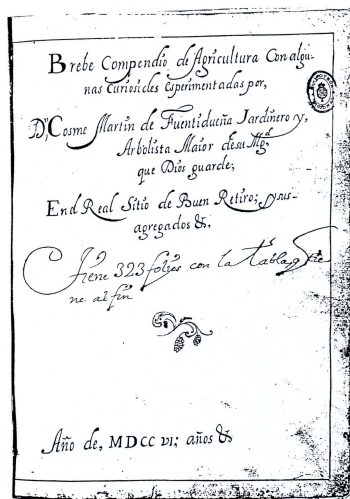 Brebe Compendio de Agricultura Con algu-
nas Curiosides Esperimentadas por,
Dn, Cosme Martin de Fuentidueña Jardinero y,
Arbolista Maior de su Mgd.
que Dios guarde;
En el Real Sitio de Buen Retiro; y sus-
agregados &.
tiene 323 folios con la tabla q tie
ne al fin
Año de, MDCC VI; años &